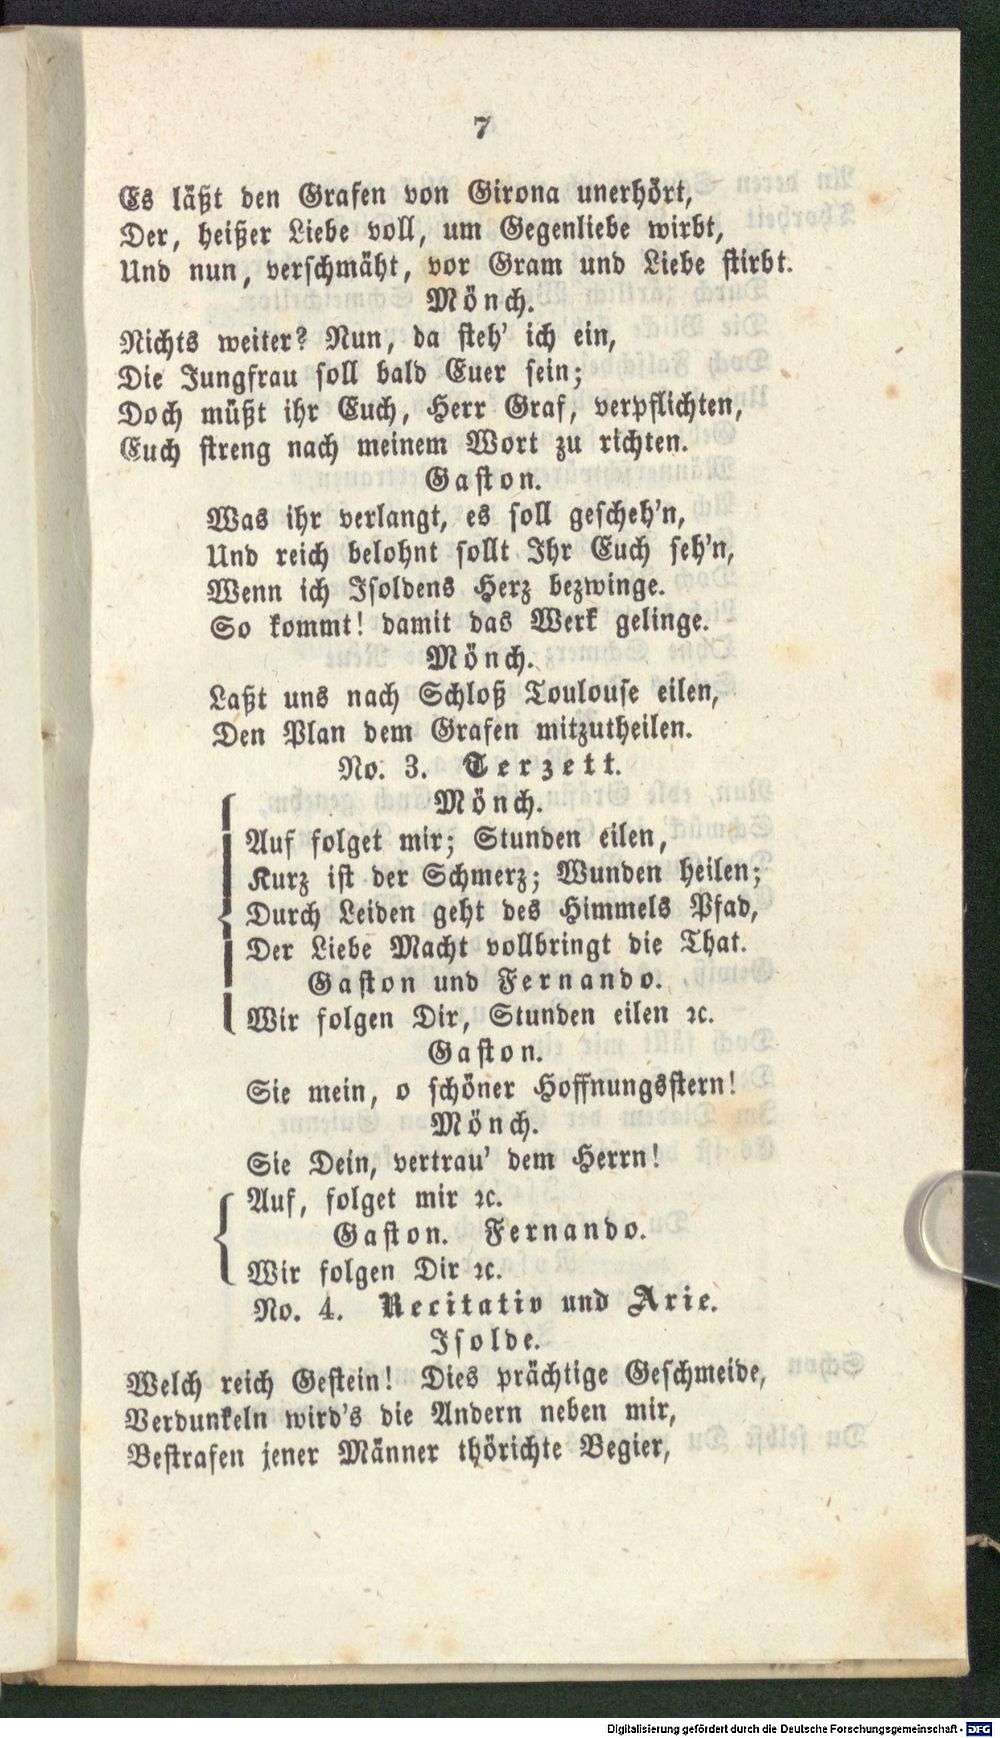 7
Es läßt den Grafen von Girona unerhört,
Der, heißer Liebe voll, um Gegenliebe wirbt,
Und nun, verschmäht, vor Gram und Liebe stirbt.
Mönch.
Nichts weiter? Nun, da steh' ich ein,
Die Jungfrau soll bald Euer sein;
Doch müßt ihr Euch, Herr Graf, verpflichten,
Euch streng nach meinem Wort zu richten.
Gaston.
Was ihr verlangt, es soll gescheh'n,
Und reich belohnt sollt Ihr Euch seh'n,
Wenn ich Isoldens Herz bezwinge.
So kommt! damit das Werk gelinge.
Mönch.
Laßt uns nach Schloß Toulouse eilen,
Den Plan dem Grafen mitzutheilen.
No. 3. Terzett.
Mönch.
Auf folget mir; Stunden eilen,
Kurz ist der Schmerz; Wunden heilen;
Durch Leiden geht des Himmels Pfad,
Der Liebe Macht vollbringt die That.
Gaston und Fernando.
Wir folgen Dir, Stunden eilen ꝛc.
Gaston.
Sie mein, o schöner Hoffnungsstern!
Mönch.
Sie Dein, vertrau' dem Herrn!
Auf, folget mir ꝛc.
Gaston. Fernando.
Wir folgen Dir ꝛc.
No. 4. Recitativ und Arie.
Isolde.
Welch reich Gestein! Dies prächtige Geschmeide,
Verdunkeln wird's die Andern neben mir,
Bestrafen jener Männer thörichte Begier,
Digitalisierung gefördert durch die Deutsche Forschungsgemeinschaft - DFG